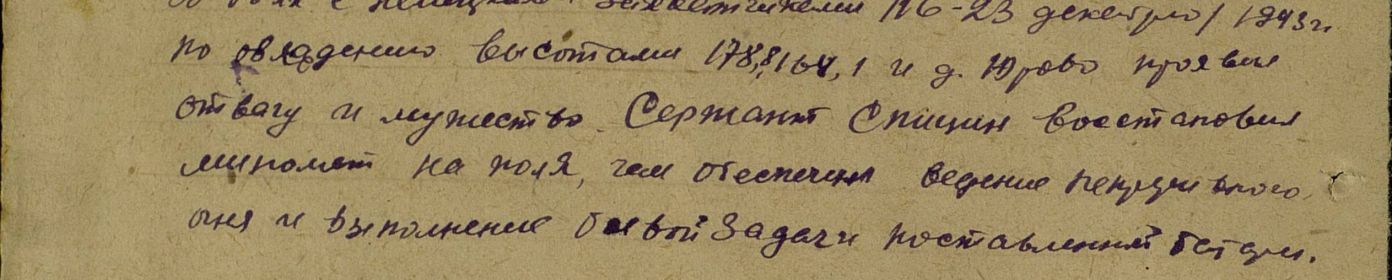 с немецкими захватчиками /16-23 декабря/ 1943 г.
по овладению высотами 178,8, 164,1 и д. Юрово проявил
отвагу и мужество. Сержант Спицин восстановил
миномет на поля, чем обеспечил ведение непрерывного
огня и выполнение боевой задачи поставленной батареи.